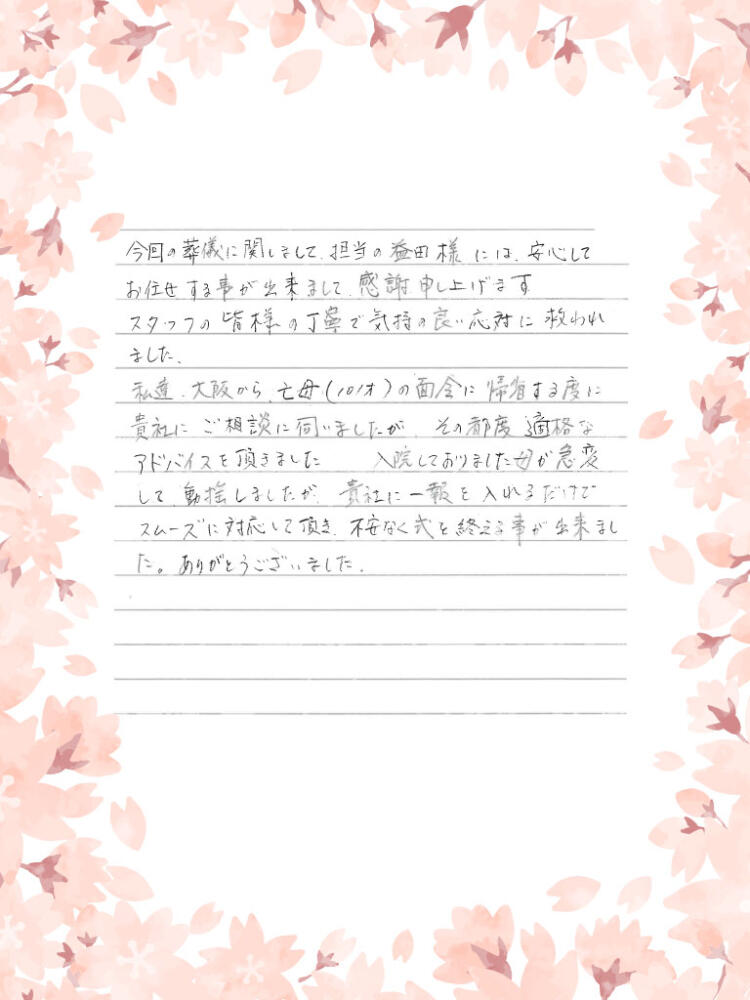 今回の葬儀に関しまして、担当の益田様には、安心して
お任せする事が出来まして、感謝申し上げます
スタッフの皆様の丁寧で気持の良い応対に救われ
ました、
私達、大阪から、亡母(101才)の面会に帰省する度に
貴社にご相談に伺いましたが その都度適格な
アドバイスを頂きました 入院しておりました母が急変
して、動揺しましたが、貴社に一報を入れるだけで
スムーズに対応して頂き、不安なく式を終える事が出来まし
た。ありがとうございました。